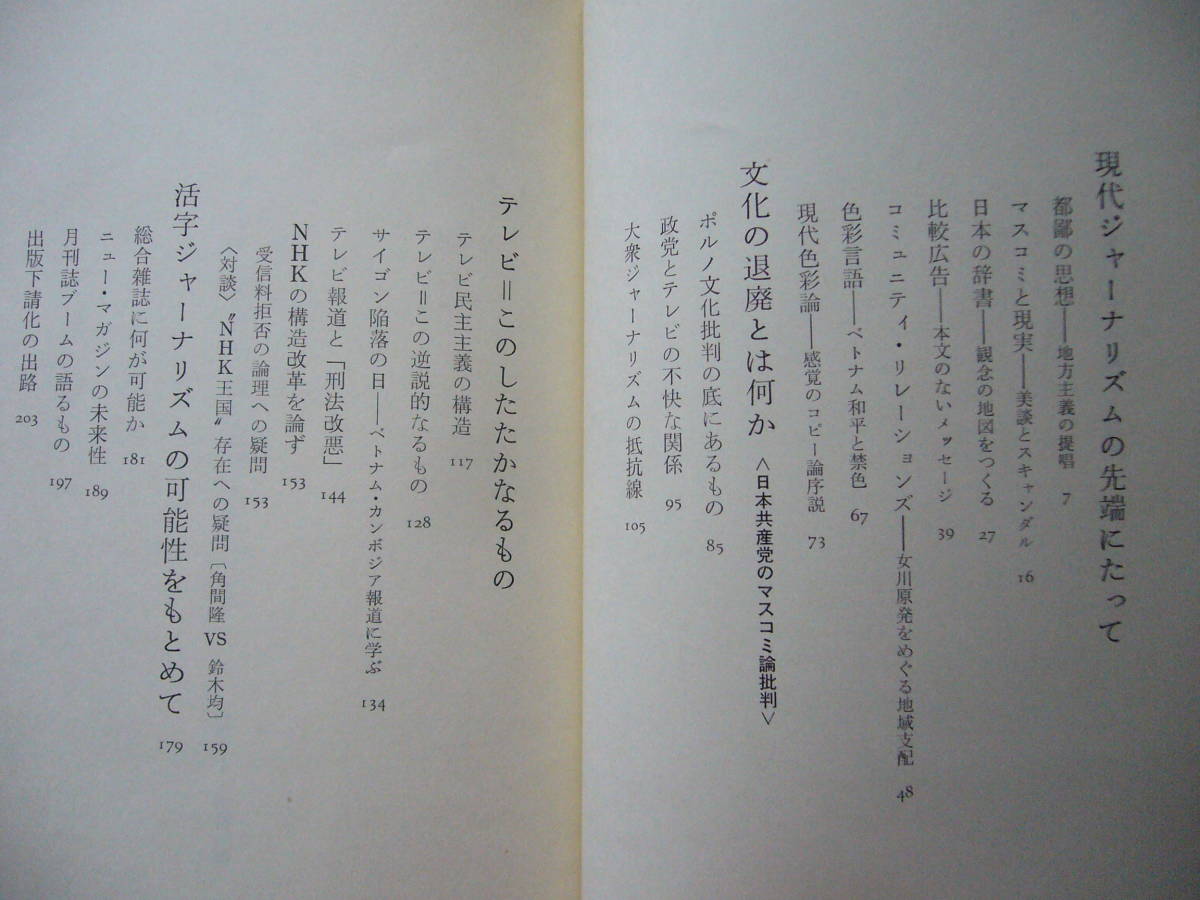 現代ジャーナリズムの先端にたって
都鄙の思想――地方主義の提唱 7
マスコミと現実――美談とスキャンダル 16
日本の辞書――観念の地図をつくる 27
比較広告――本文のないメッセージ 39
コミュニティ・リレーションズ――女川原発をめぐる地域支配 48
色彩言語――ベトナム和平と禁色 67
現代色彩論――感覚のコピー論序説 73
文化の退廃とは何か <日本共産党のマスコミ論批判>
ポルノ文化批判の底にあるもの 85
政党とテレビの不快な関係 95
大衆ジャーナリズムの抵抗線 105
テレビ=このしたたかなるもの
テレビ民主主義の構造 117
テレビ=この逆説的なるもの 128
サイゴン陥落の日――ベトナム・カンボジア報道に学ぶ 134
テレビ報道と「刑法改悪」 144
NHKの構造改革を論ず 153
受信料拒否の論理への疑問 153
〈対談〉〝NHK王国〟存在への疑問〔角間隆 VS 鈴木均〕 159
活字ジャーナリズムの可能性をもとめて 179
総合雑誌に何が可能か 181
ニュー・マガジンの未来性 189
月刊誌ブームの語るもの 197
出版下請化の出路 203